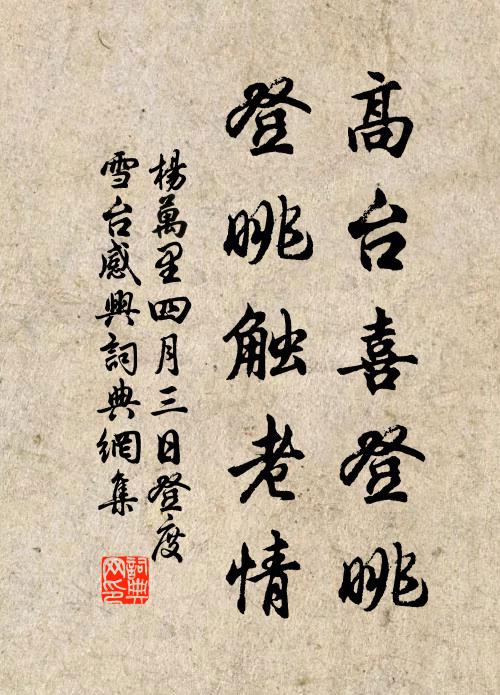 高台喜登眺
登眺触老情
楊萬里四月三日登度
雪台感興詞典網集
詞典
网印